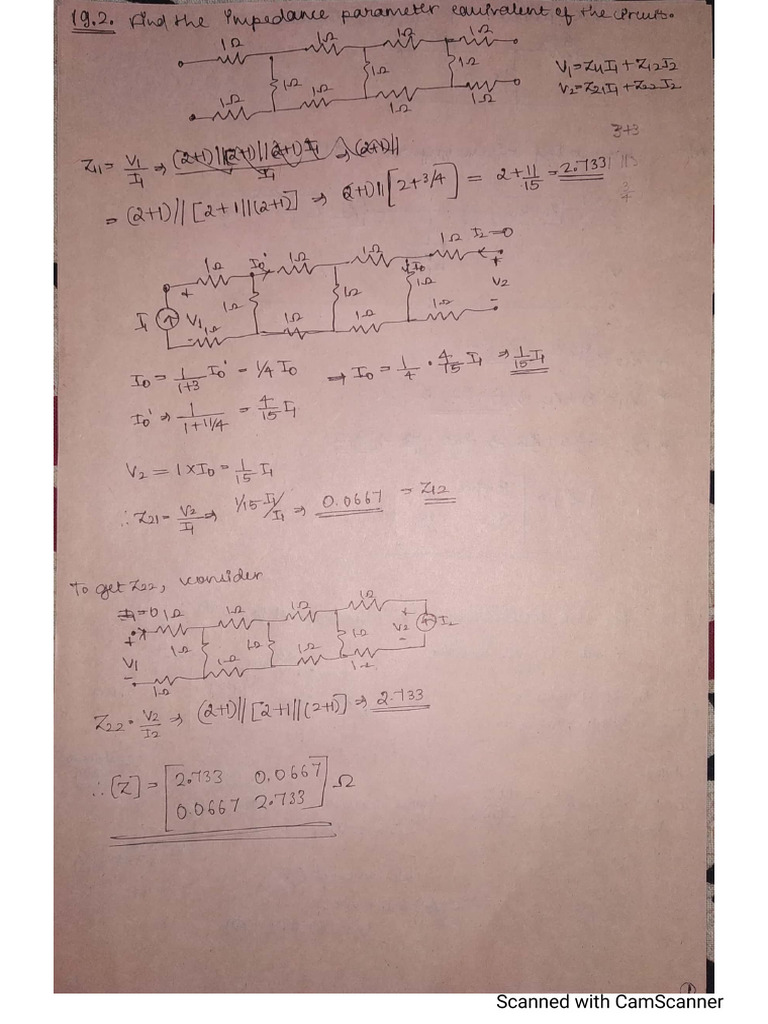 19.2. Find the impedance parameter equivalent of the circuit.
1Ω 1Ω 1Ω 1Ω
1Ω 1Ω 1Ω
1Ω 1Ω 1Ω 1Ω
V1=Z11I1+Z12I2
V2=Z21I1+Z22I2
3+3
Z11 = V1/I1 ⇒
= (2+1)//[2+1||(2+1)] ⇒ (2+1)||[2+3/4] = 2+11/15 = 2.733
3/4
1Ω I2=0
1Ω I0' 1Ω 1Ω I0
+ 1Ω 1Ω 1Ω + V2 -
I1 V1 - 1Ω 1Ω 1Ω 1Ω
I0 = 1/1+3 I0' = 1/4 I0 ⇒ I0 = 1/4 · 4/15 I1 ⇒ 1/15 I1
I0' ⇒ 1/1+11/4 = 4/15 I1
V2 = 1×I0 = 1/15 I1
∴ Z21 = V2/I1 ⇒ 1/15 I1/I1 ⇒ 0.0667 = Z12
To get Z22, consider
I1=0 1Ω 1Ω 1Ω 1Ω
+ V1 - 1Ω 1Ω 1Ω + V2 - I2
1Ω 1Ω 1Ω 1Ω
Z22 = V2/I2 ⇒ (2+1)||[2+1||(2+1)] ⇒ 2.733
∴ [Z] = [2.733 0.0667
0.0667 2.733] Ω
1
Scanned with CamScanner